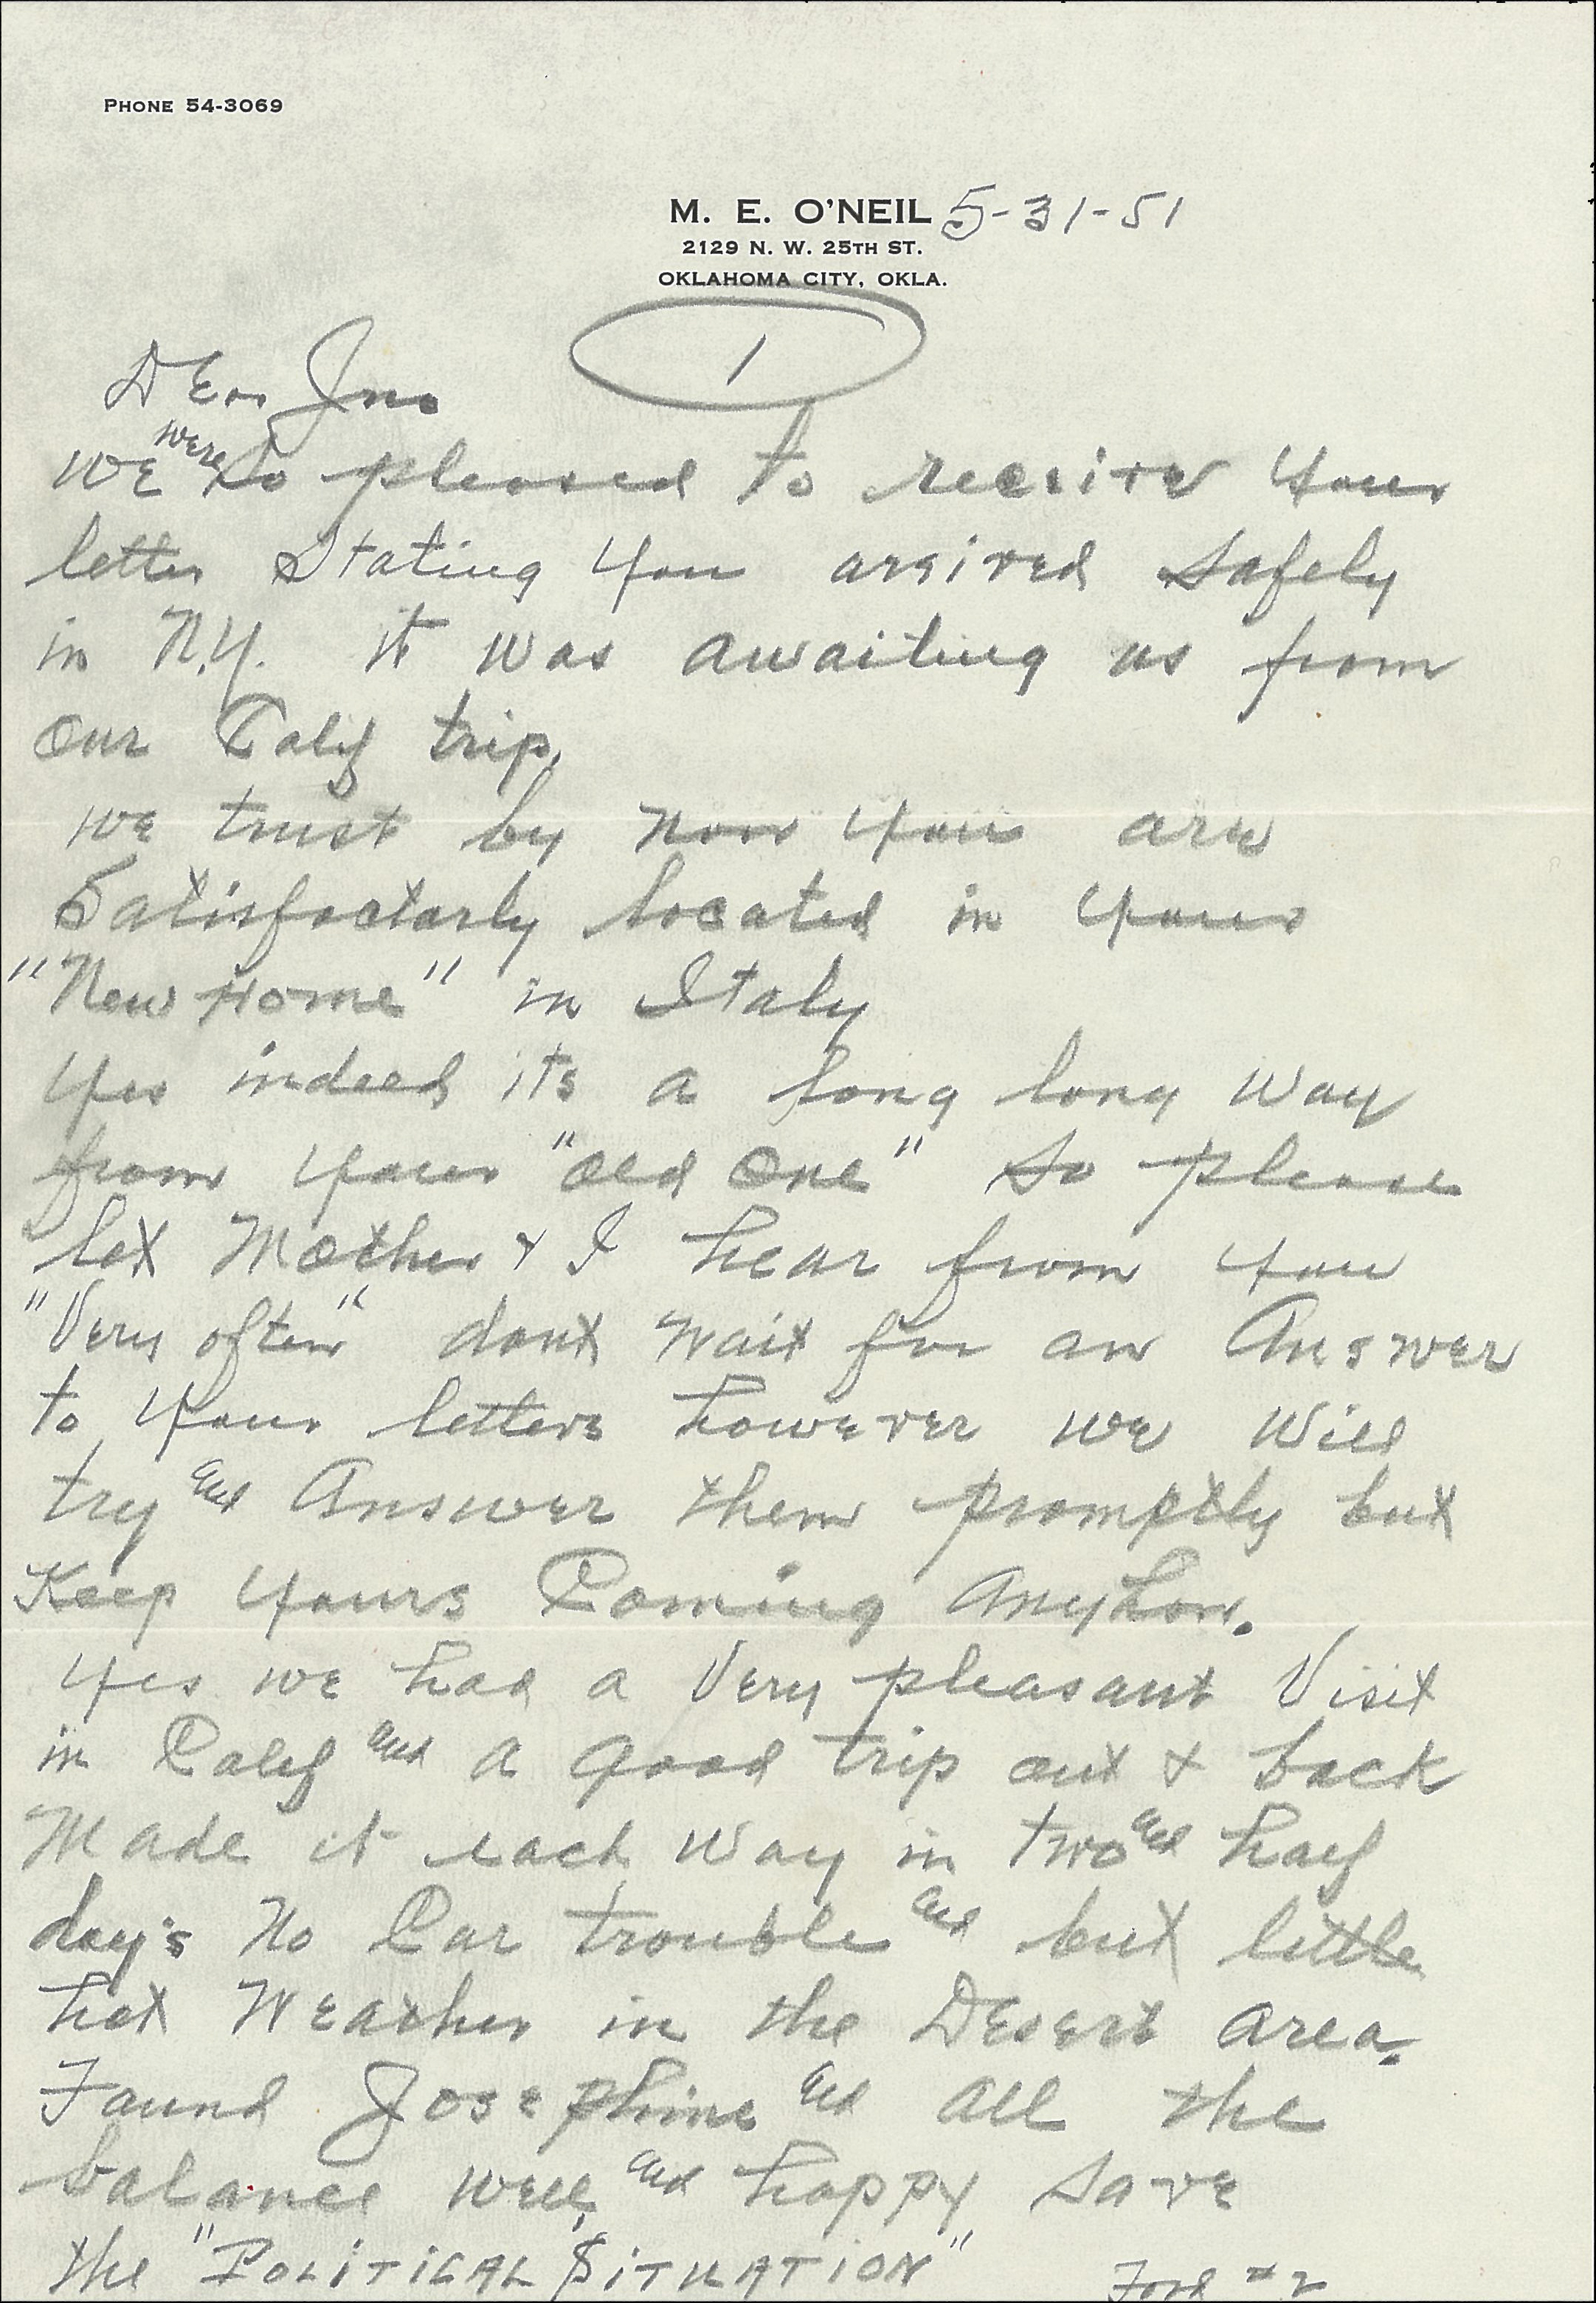 PHONE 54-3069
M. E. O'NEIL 5-31-51
2129 N. W. 25TH ST.
OKLAHOMA CITY, OKLA.
1
Dear Jno
We were so pleased to receive your
letter stating you arrived safely
in N.Y. it was awaiting us from
our Calif trip.
we trust by now you are
Satisfactarly located in your
"New Home" in Italy
Yes indeed its a long long way
from your "old one" so please
let Mother & I hear from you
"Very often" dont wait for an Answer
to your letters however we will
try and Answer them promptly but
Keep yours Coming Anyhow.
Yes we had a Very pleasant Visit
in Calif and a good trip out & back
Made it each way in two and half
day's No Car trouble and but little
hot Weather in the Desert area.
Found Josephine and all the
balance well, and happy save
the "POLITICAL SITUATION"